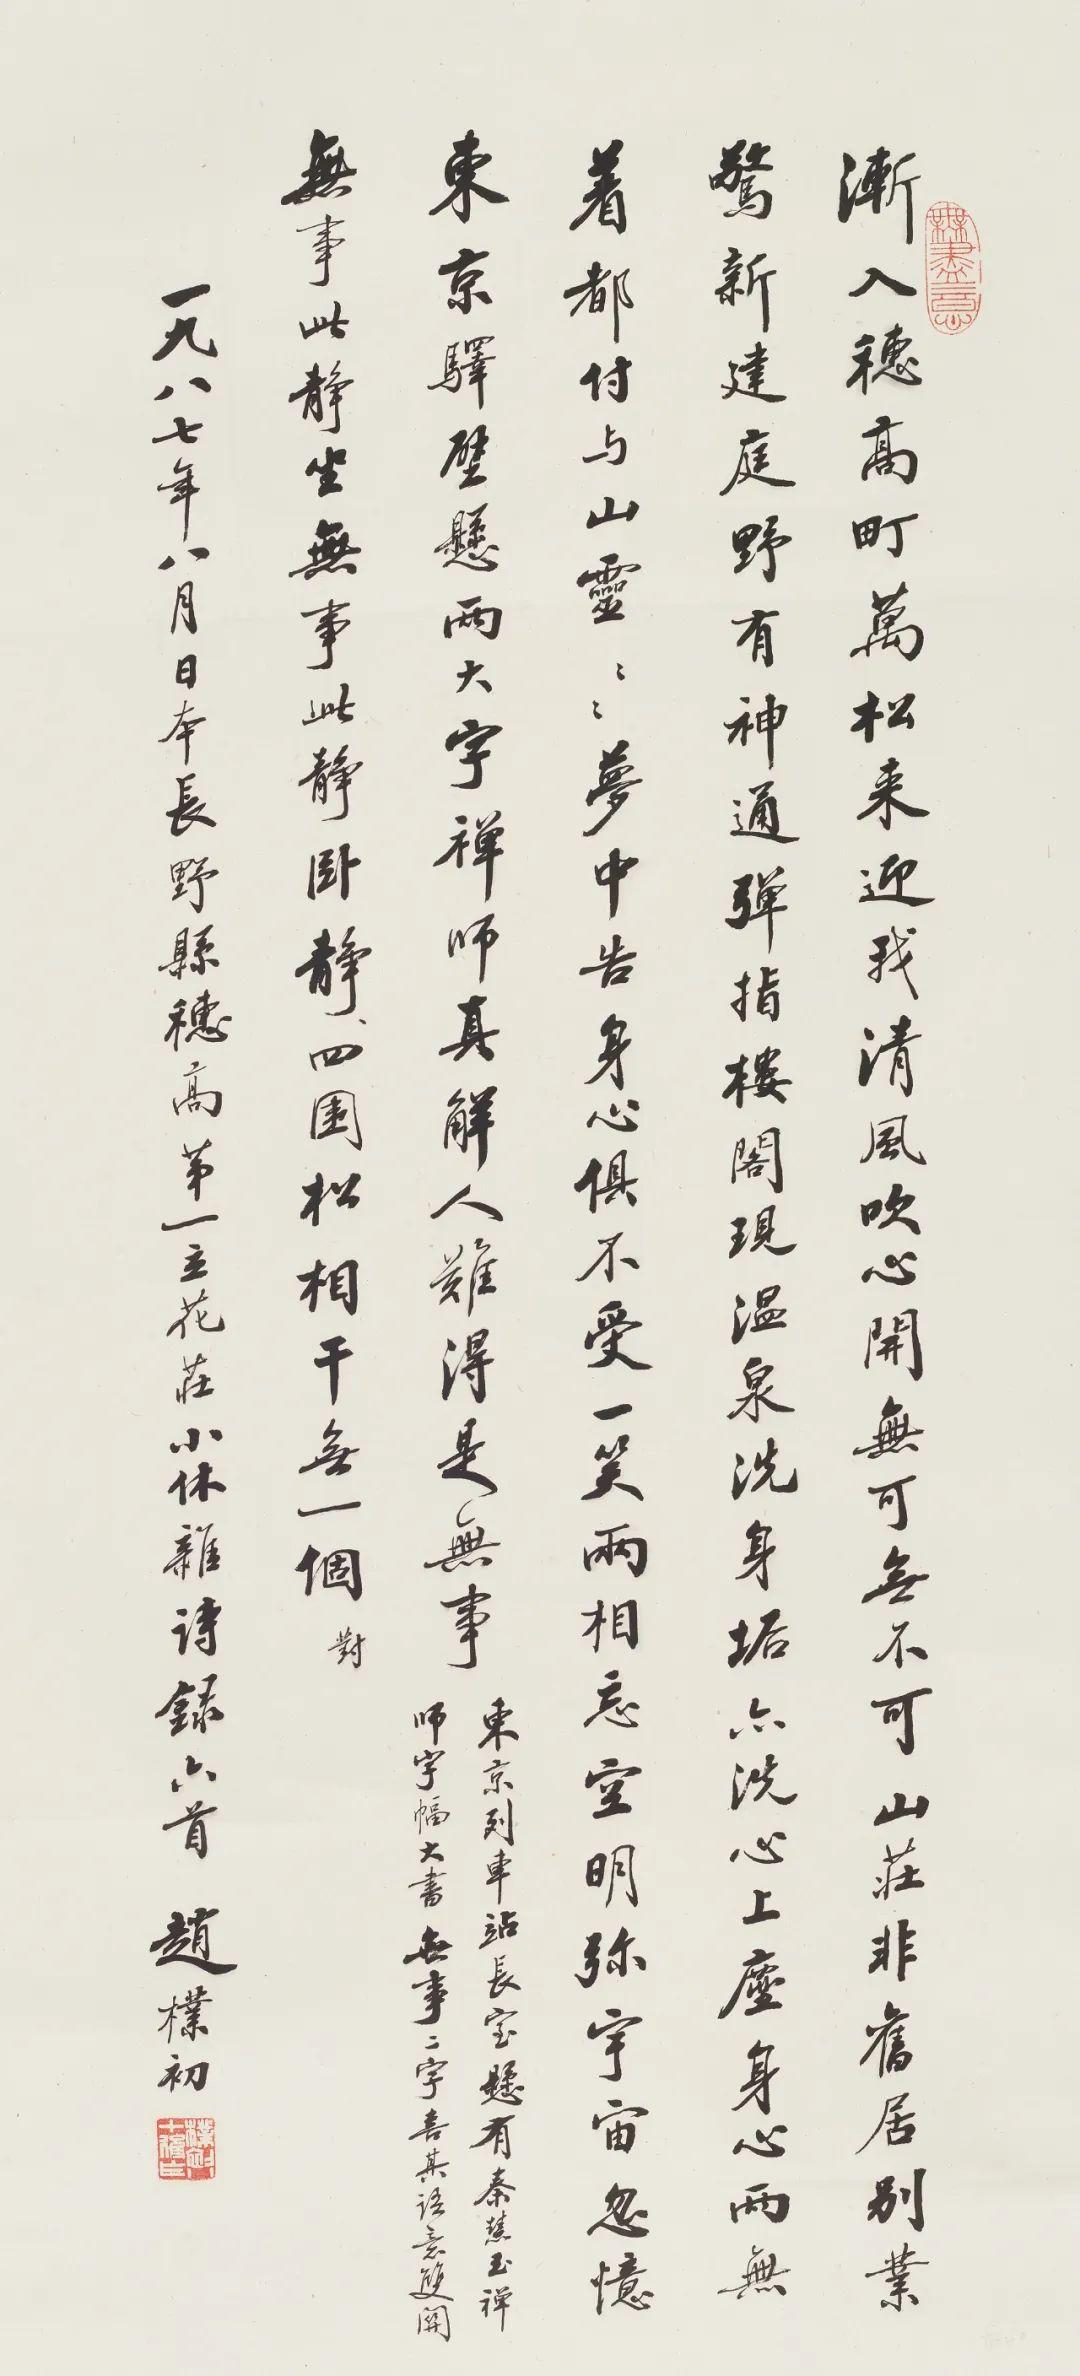 無盡意
漸入穗高町萬松来迎我清風吹心開無可無不可山莊非舊居别業
驚新建庭野有神通彈指樓閣現温泉洗身垢亦洗心上塵身心兩無
着都付与山靈〻〻夢中告身心俱不受一笑兩相忘空明弥宇宙忽憶
東京驛壁懸兩大字禅师真解人難得是無事
東京列車站長室懸有秦慧玉禅
师字幅大書無事二字喜其语意雙関
無事此静坐無事此静卧静對四圍松相干無一個
一九八七年八月日本長野縣穗高第一立花莊小休雜诗録六首 趙樸初